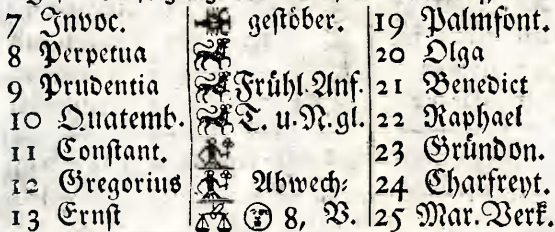 7 Invoc. geſtöber. 19 Palmſont.
8 Perpetua 20 Olga
9 Prudentia Frühl. Anf. 21 Benedict
10 Quatemb. T. u. N. gl. 22 Raphael
11 Conſtant. 23 Gründon.
12 Gregorius Abwech⸗ 24 Charfreyt.
13 Ernſt 8, V. 25 Mar. Verk.